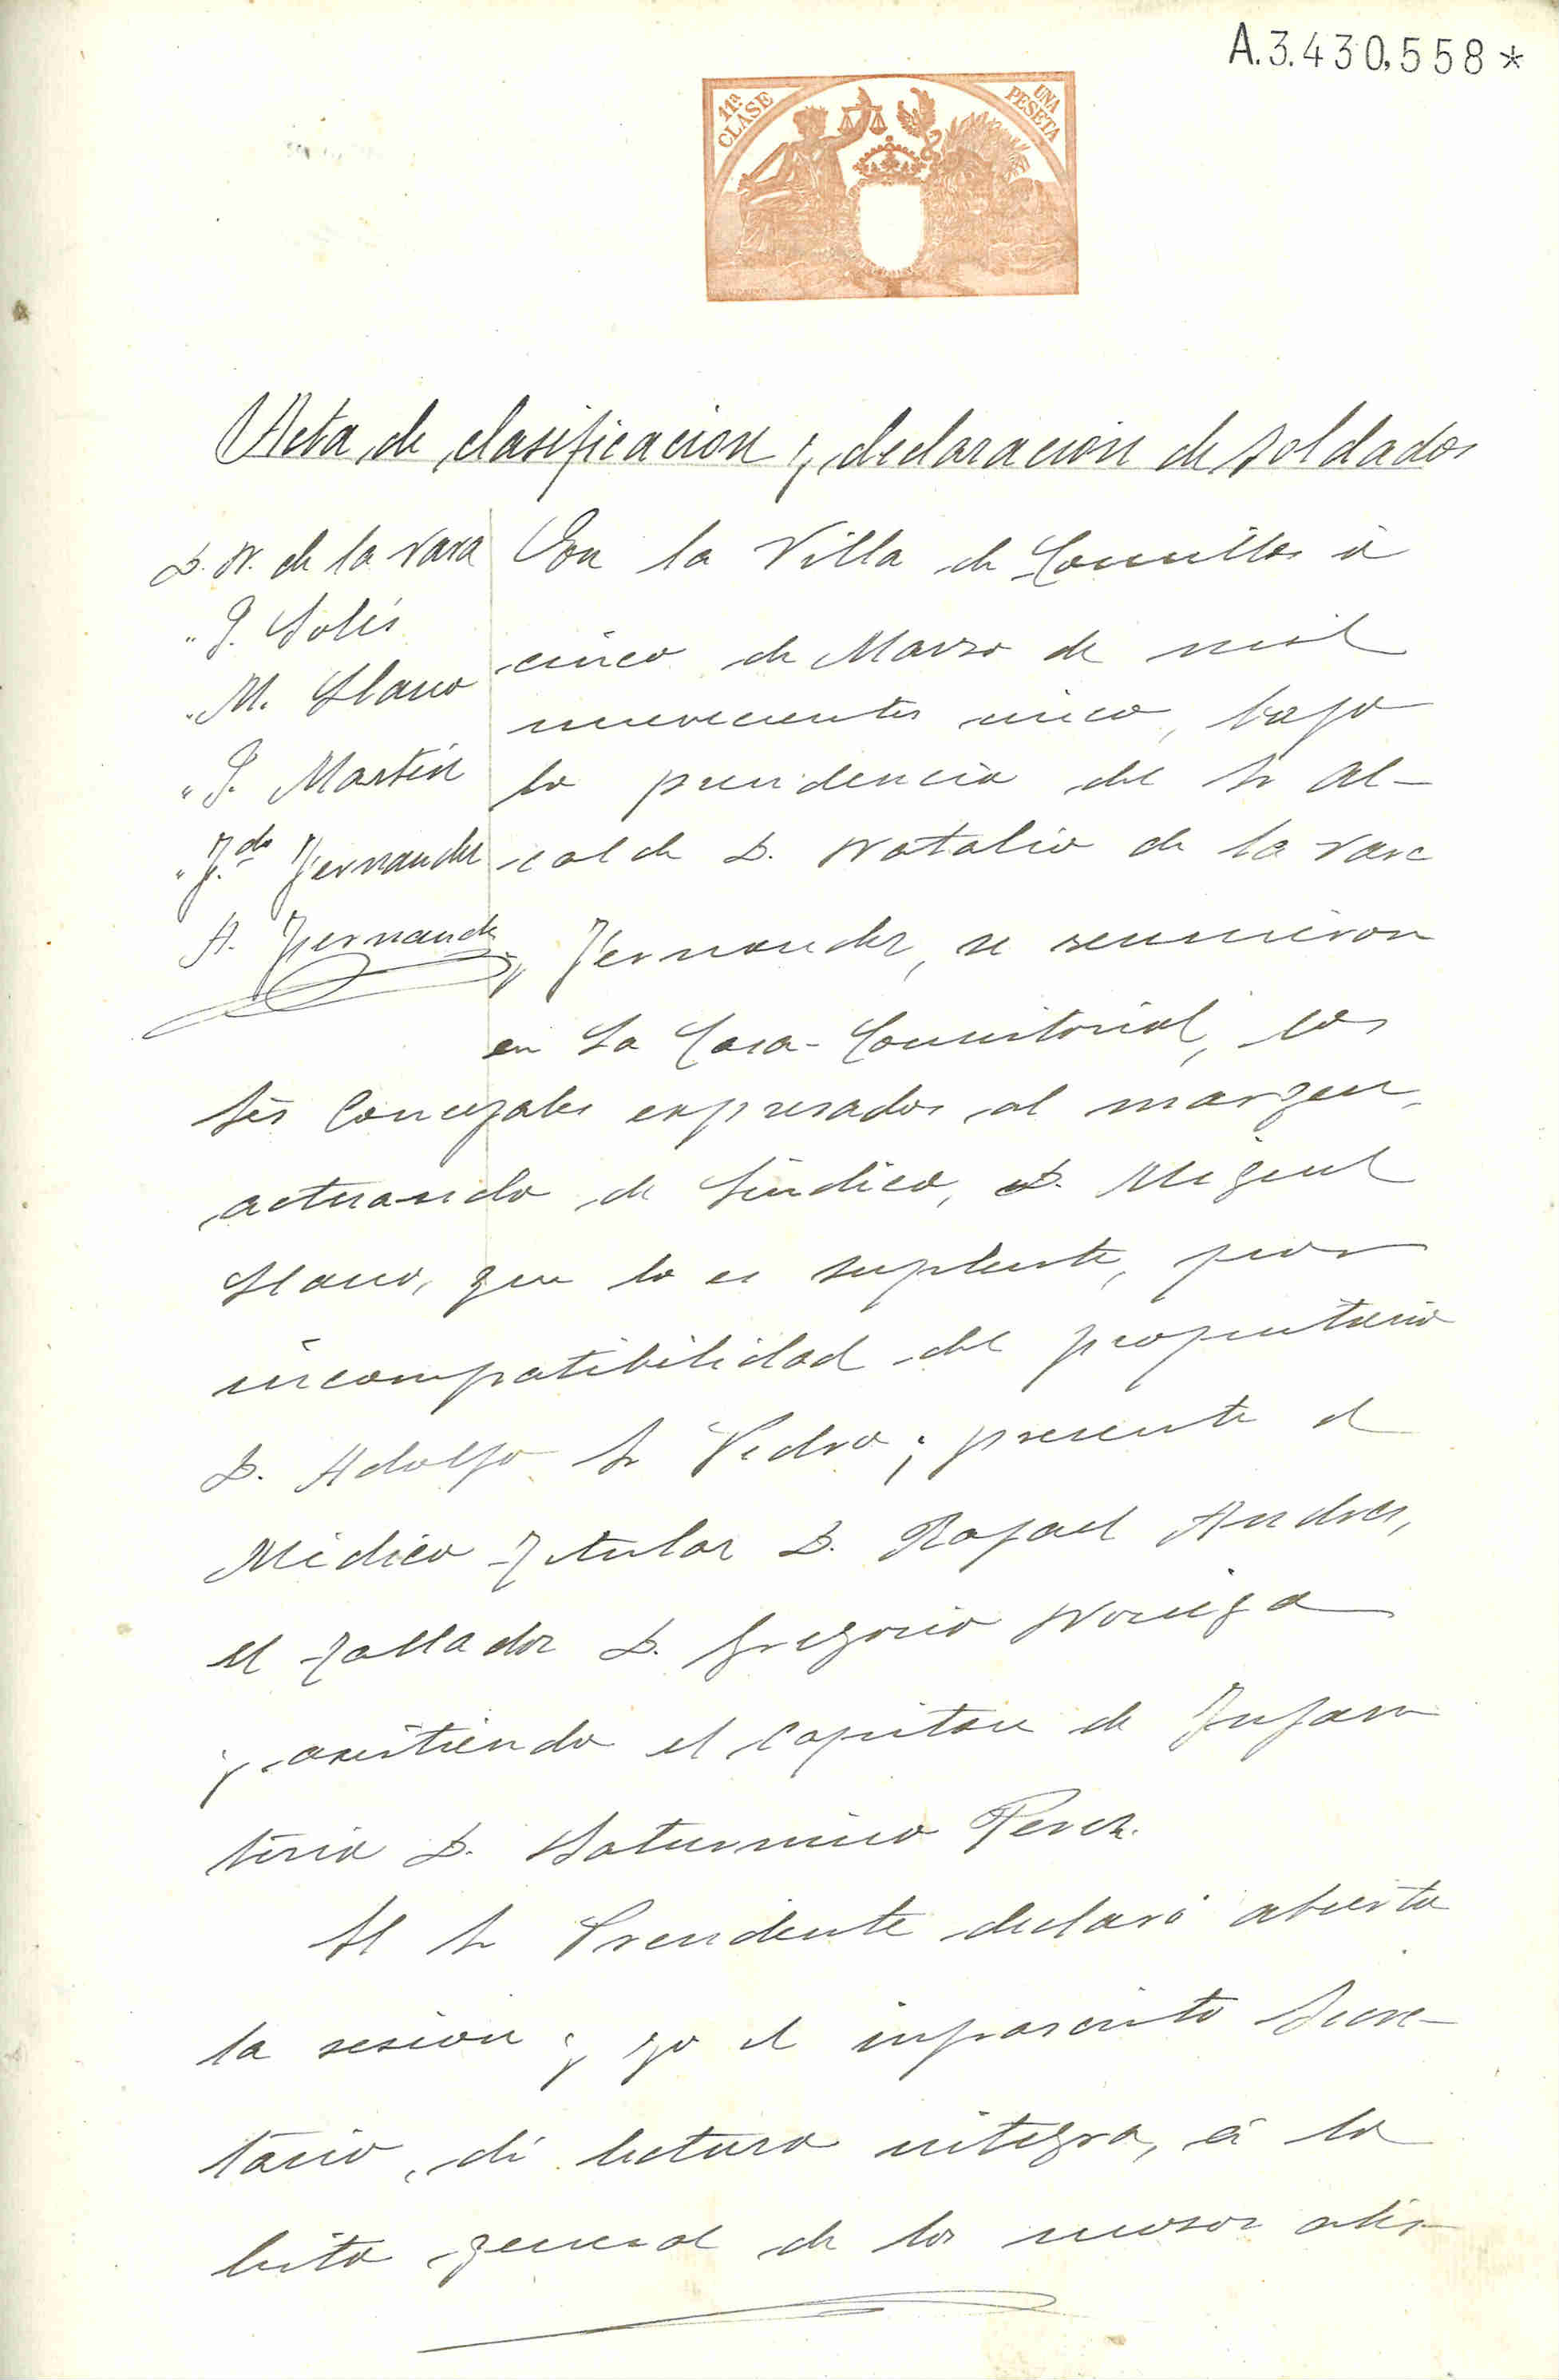 A.3.430,558*
11ª CLASE
UNA PESETA
Acta de clasificacion y declaracion de soldados
D. N. de la Vara
" J. Solís
" M. Llano
" J. Martín
" F.do Fernandez
A. Fernandez
En la Villa de Comillas á
cinco de Marzo de mil
nuevecientos cinco, bajo
la presidencia del Sr Al-
calde D. Natalio de la Vara
y Fernandez, se reunieron
en la Casa-Consistorial, los
Sres Concejales expresados al margen,
actuando de Síndico, D. Miguel
Llano, que lo es suplente, por
incompatibilidad del propietario
D. Adolfo Sn Pedro; presente el
Médico Titular D. Rafael Andres,
el Tallador D. Gregorio Noriega
y asistiendo el Capitan de Infan
teria D. Saturnino Perez.
El Sr Presidente declaró abierta
la sesion y yo el infrascrito Secre-
tario, dí lectura integra, á la
lista general de los mozos alis-